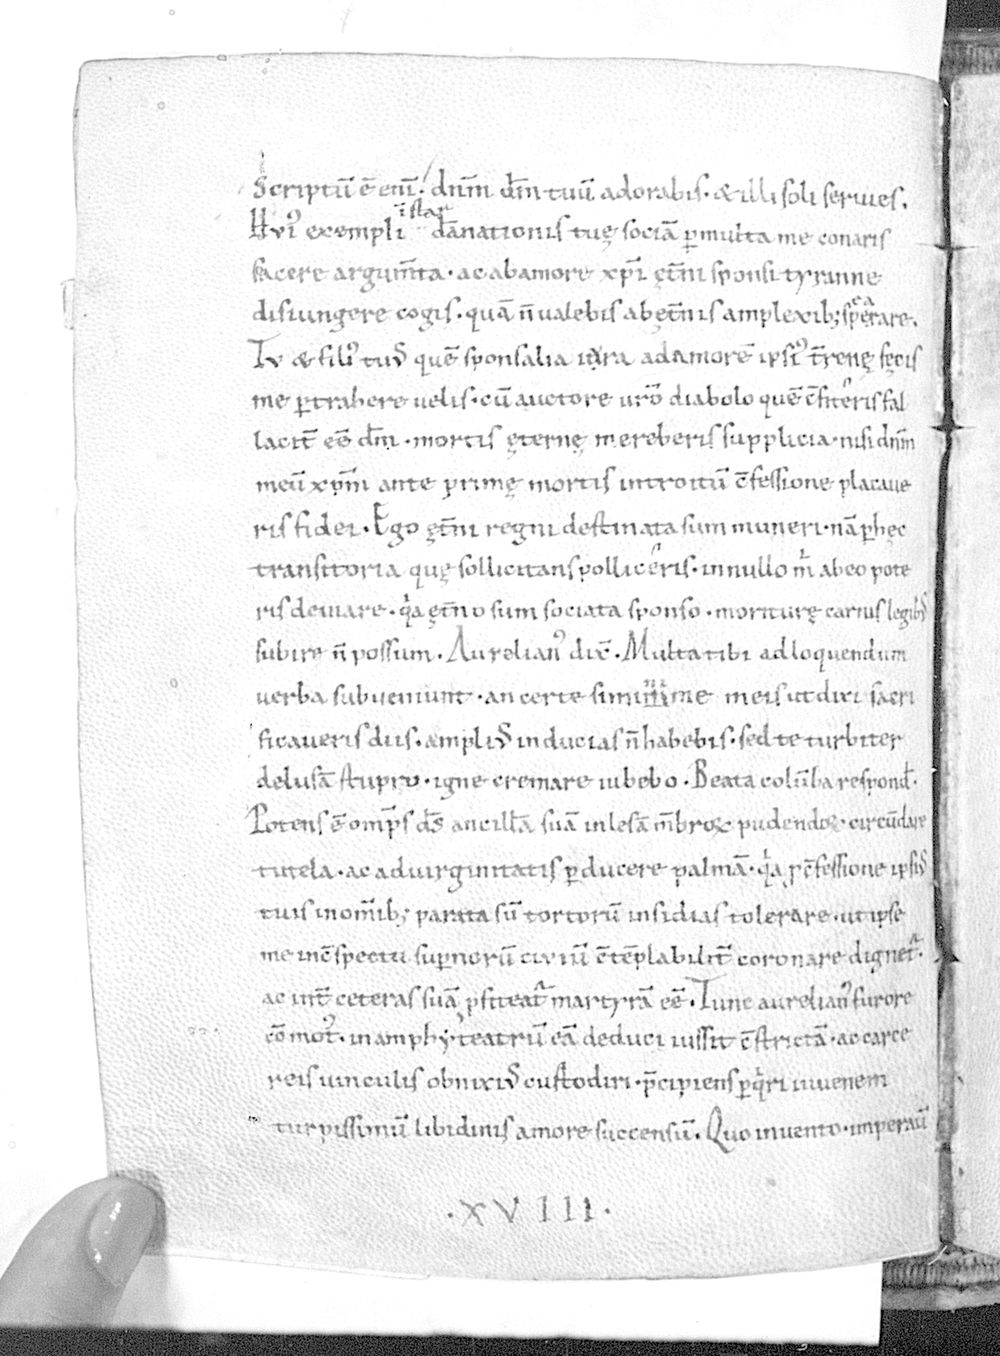 Scriptũ ẽ enĩ. dnm̃ dm̃ tuũ adorabis. & illi soli serues.
Huiꝰ exempli ĩstar dãnationis tuę sociã ꝑ multa me conaris
facere argum̃ta. ac ab amore xp̃i ęt̃ni sponsi tyranne
disiungere cogis. quã ñ ualebis ab ęt̃nis amplexib; sperare.
Tu & filiꝰ tuꝰ quẽ sponsalia iura ad amorẽ ipsiꝰ t̃renę fęcis
me ꝑtrahere uelis. cũ auctore ur̃o diabolo quẽ c̃fiteris fal
lacit̃ eẽ dm̃. mortis ęternę mereberis supplicia. nisi dnm̃
meũ xpm̃ ante primę mortis introitũ c̃fessione placaue
ris fidei. Ego ęt̃ni regni destinata sum muneri. nã ꝑ hęc
transitoria quę sollicitans polliceris. in nullo m̃ ab eo pote
ris deuiare. q̃a ęt̃no sum sociata sponso. moriturę carnis legibꝰ
subire ñ possum. Aurelianꝰ dix̃. Multa tibi ad loquendum
uerba subueniunt. an certe si minime meis ut dixi sacri
ficaueris diis. ampliꝰ inducias ñ habebis. sed te turbiter
delusã stupro. igne cremare iubebo. Beata colũba respond̃.
Potens ẽ omp̃s ds̃ ancillã suã inlesã m̃broꝝ pudendoꝝ circũdare
tutela. ac ad uirginitatis ꝑducere palmã. q̃a ꝓ c̃fessione ipsiꝰ
tuis in om̃ib; parata sũ tortorũ insidias tolerare. ut ipse
me in c̃spectu suꝑnorũ ciuiũ c̃tẽplabilit̃ coronare dignet̃.
ac int̃ ceteras suã ꝓfiteat̃ martyrã eẽ. Tunc aurelianꝰ furore
cõmotꝰ. in amphyteatriũ eã deduci iussit c̃strictã. ac carce
reis uinculis obnixiꝰ custodiri. p̃cipiens ꝑq̃ri iuuenem
turpissimũ libidinis amore succensũ. Quo inuento. imperaũ
.XVIIII.